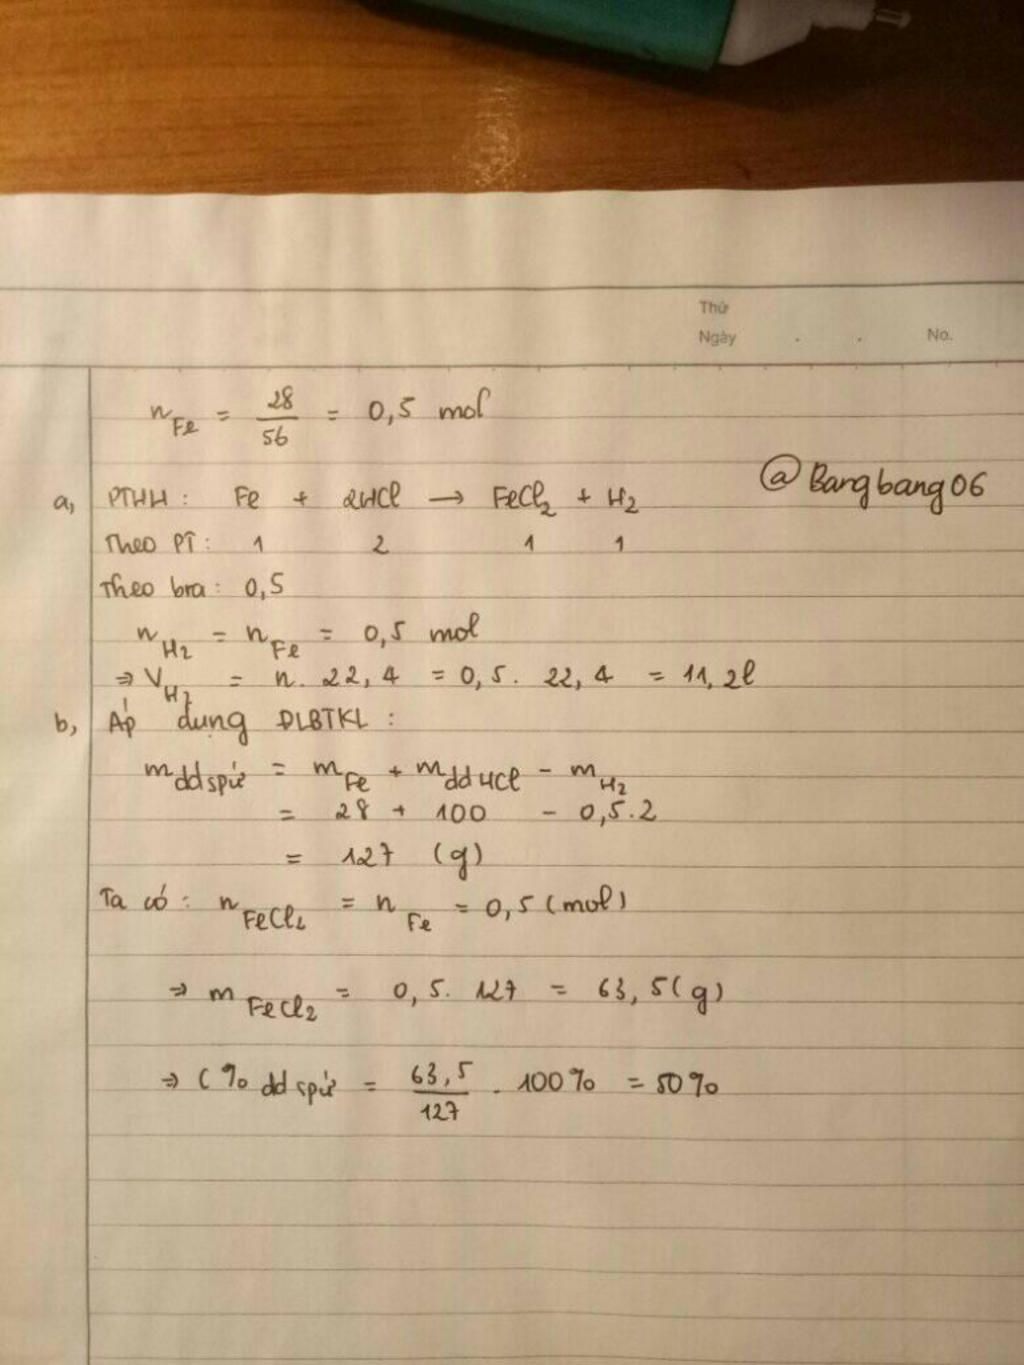 Thứ
Ngày . . No.
n Fe = 28/56 = 0,5 mol
@Bangbang06
a, PTHH : Fe + 2HCl → FeCl2 + H2
Theo PT : 1 2 1 1
Theo bra : 0,5
n H2 = n Fe = 0,5 mol
⇒ V H2 = n. 22,4 = 0,5. 22,4 = 11,2l
b, Áp dụng DLBTKL :
m ddspứ = m Fe + m ddHCl - m H2
= 28 + 100 - 0,5.2
= 127 (g)
Ta có : n FeCl2 = n Fe = 0,5 (mol)
⇒ m FeCl2 = 0,5. 127 = 63,5(g)
⇒ C% ddspứ = 63,5/127 . 100% = 50%